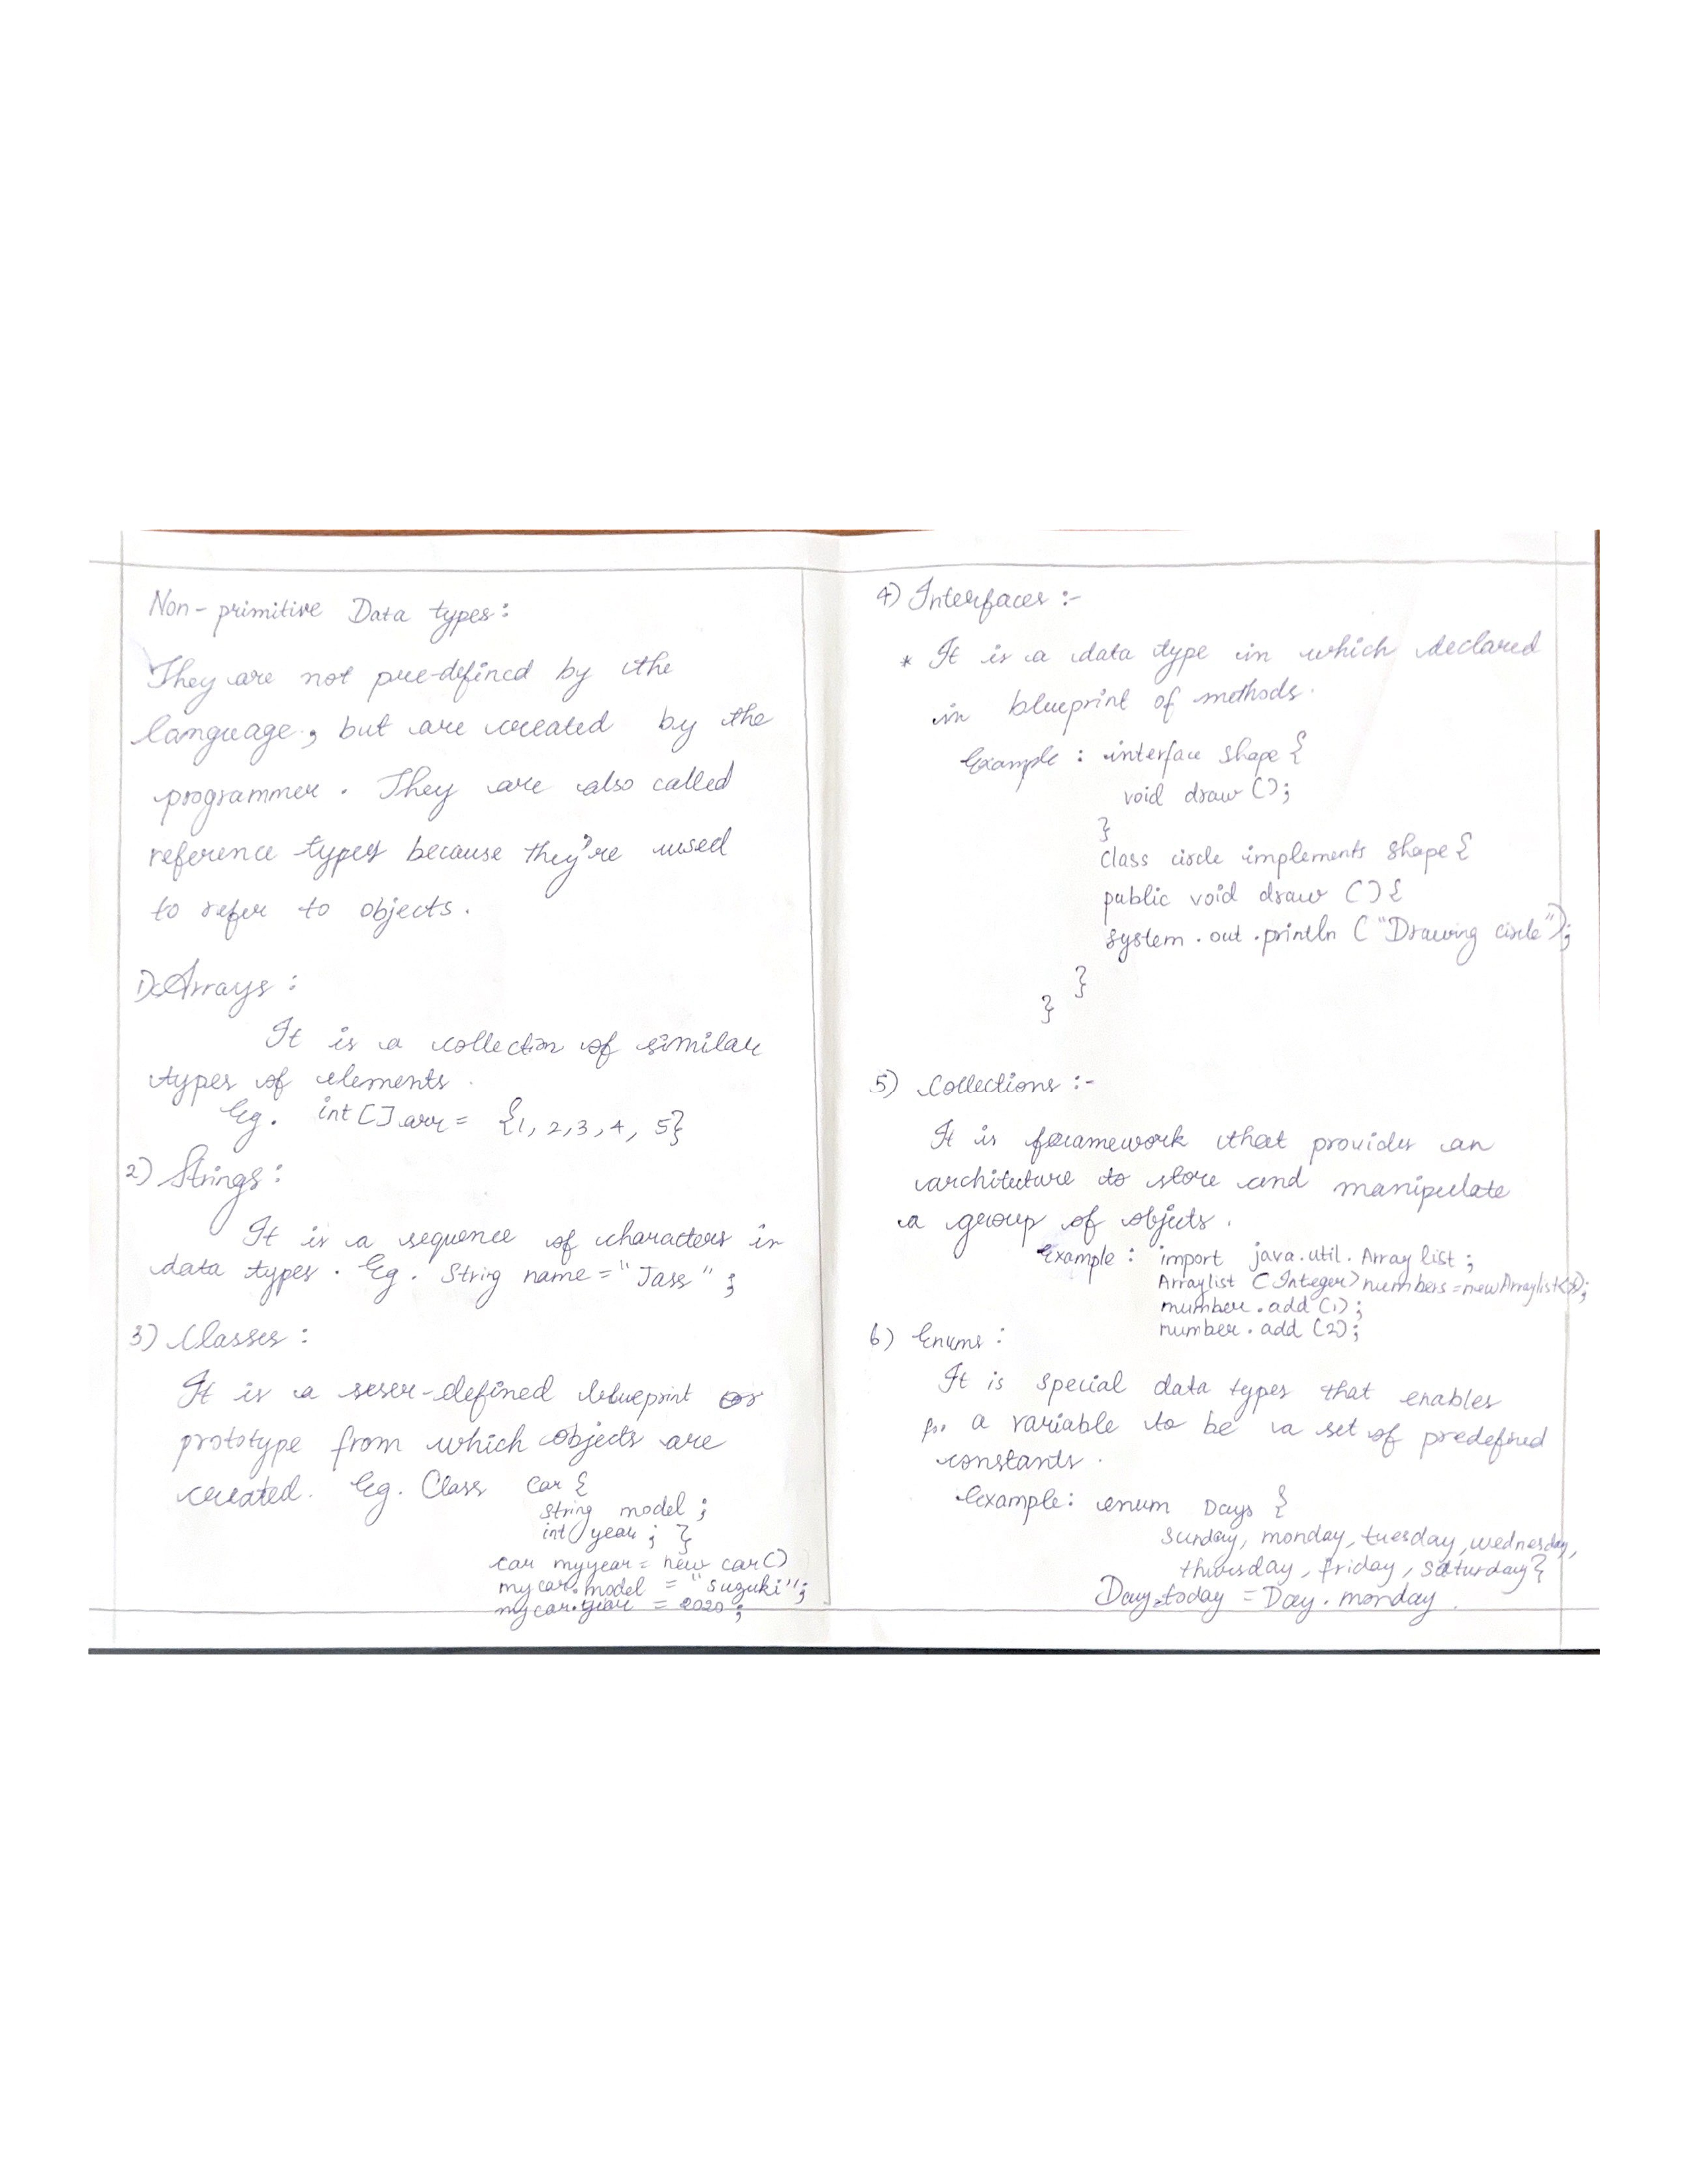 Non-primitive Data types:
They are not pre-defined by the
language, but are created by the
programmer. They are also called
reference types because they're used
to refer to objects.
1) Arrays:
It is a collection of similar
types of elements.
Eg. int[] arr = {1, 2, 3, 4, 5}
2) Strings:
It is a sequence of characters in
data types. Eg. String name = "Jass";
3) Classes:
It is a user-defined blueprint or
prototype from which objects are
created. Eg. Class Car {
String model;
int year; }
car myyear = new car()
mycar.model = "Suzuki";
mycar.year = 2020;
4) Interfaces :-
* It is a data type in which declared
in blueprint of methods.
Example: interface shape {
void draw ();
}
Class circle implements shape {
public void draw () {
system.out.println ("Drawing circle");
}
}
5) Collections :-
It is framework that provides an
architecture to store and manipulate
a group of objects.
Example: import java.util.Array list;
Arraylist (Integer> numbers = new Arraylist<>);
number.add (1);
number.add (2);
6) Enums:
It is special data types that enables
for a variable to be a set of predefined
constants.
Example: enum Days {
sunday, monday, tuesday, wednesday,
thursday, friday, saturday}
Day today = Day.monday.